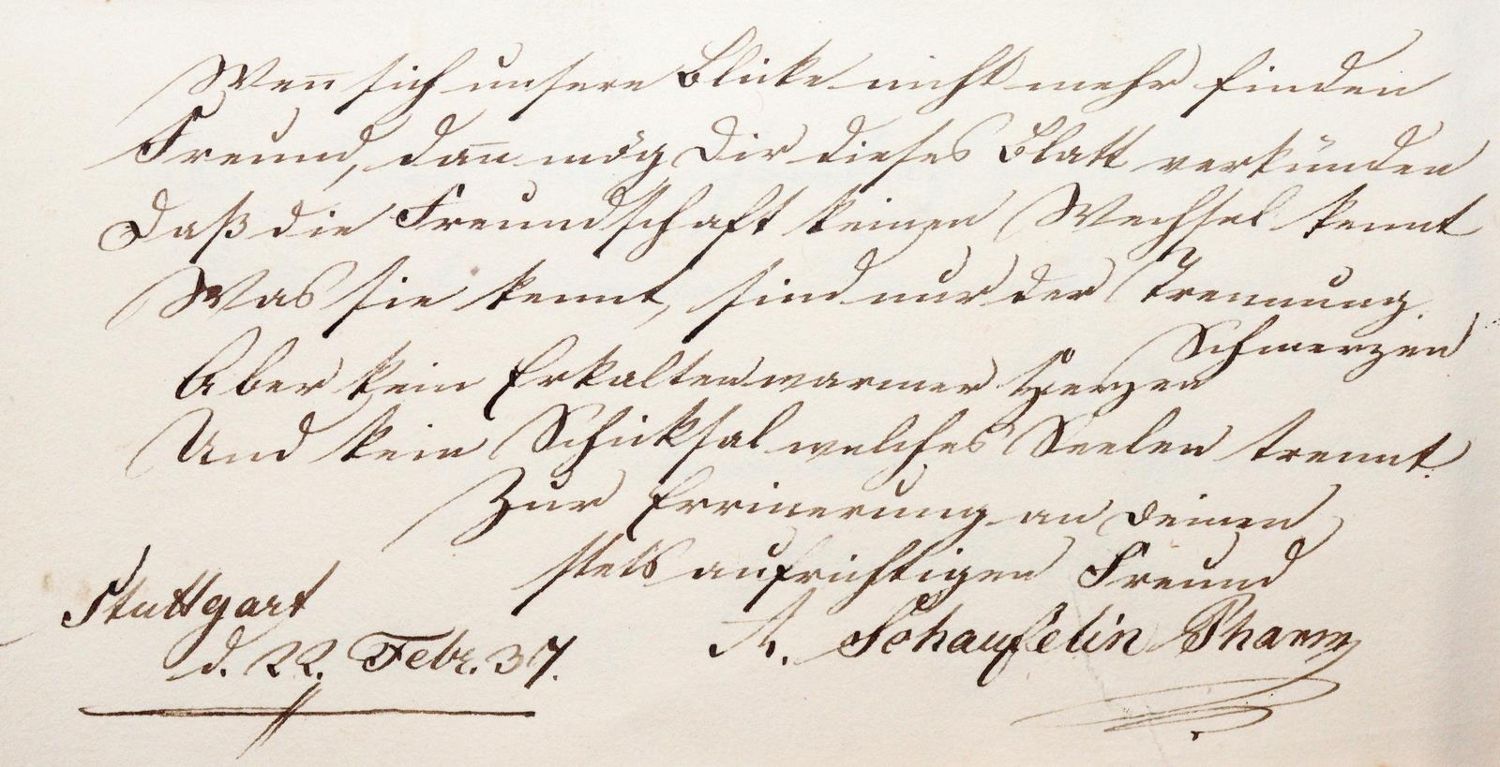 Wen̄ sich unsere Blicke nicht mehr finden
Freund, dan̄ mög Dir dieses Blatt verkünden
Daß die Freundschaft keinen Wechsel kennt
Was sie kennt, sind nur der Trennung
Schmerzen
Aber kein Erkalten warmer Herzen
Und kein Schicksal welches Seelen trennt.
Zur Errinerung an Deinen
stets aufrichtigen Freund
Stuttgart
A. Schaufelin Pharm
d. 22. Febr. 37.